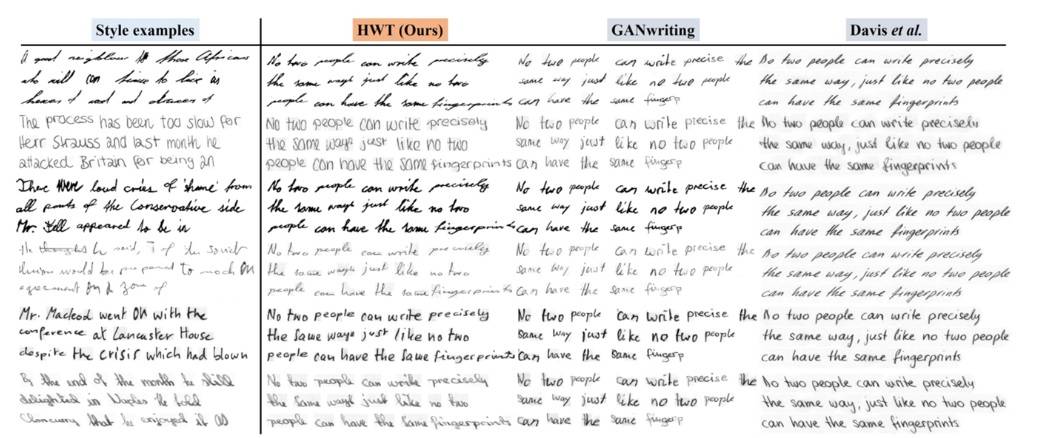 Style examples
A good neighbour to those Africans
who will to live in
of and of
The process has been too slow for
Herr Strauss and last month he
attacked Britain for being an
There were loud cries of 'shame' from
all parts of the Conservative side
Mr. appeared to be in
he said, of the Soviet
would be prepared to reach an
agreement on a zone of
Mr. Macleod went on with the
conference at Lancaster House
despite the crisis which had blown
By the end of the month he still
delighted in Naples he told
that he enjoyed it as
HWT (Ours)
No two people can write precisely
the same ways just like no two
people can have the same fingerprints
No two people can write precisely
the same ways just like no two
people can have the same fingerprints
No two people can write precisely
the same ways just like no two
people can have the same fingerprints
No two people can write precisely
the same ways just like no two
people can have the same fingerprints
No two people can write precisely
the same ways just like no two
people can have the same fingerprints
No two people can write precisely
the same ways just like no two
people can have the same fingerprints
GANwriting
No two people can write precise the
same way just like no two people
can have the same fingerp
No two people can write precise the
same way just like no two people
can have the same fingerp
No two people can write precise the
same way just like no two people
can have the same fingerp
No two people can write precise the
same way just like no two people
can have the same fingerp
No two people can write precise the
same way just like no two people
can have the same fingerp
No two people can write precise the
same way just like no two people
can have the same fingerp
Davis et al.
No two people can write precisely
the same way, just like no two people
can have the same fingerprints
No two people can write precisely
the same way, just like no two people
can have the same fingerprints
No two people can write precisely
the same way, just like no two people
can have the same fingerprints
No two people can write precisely
the same way, just like no two people
can have the same fingerprints
No two people can write precisely
the same way, just like no two people
can have the same fingerprints
No two people can write precisely
the same way, just like no two people
can have the same fingerprints